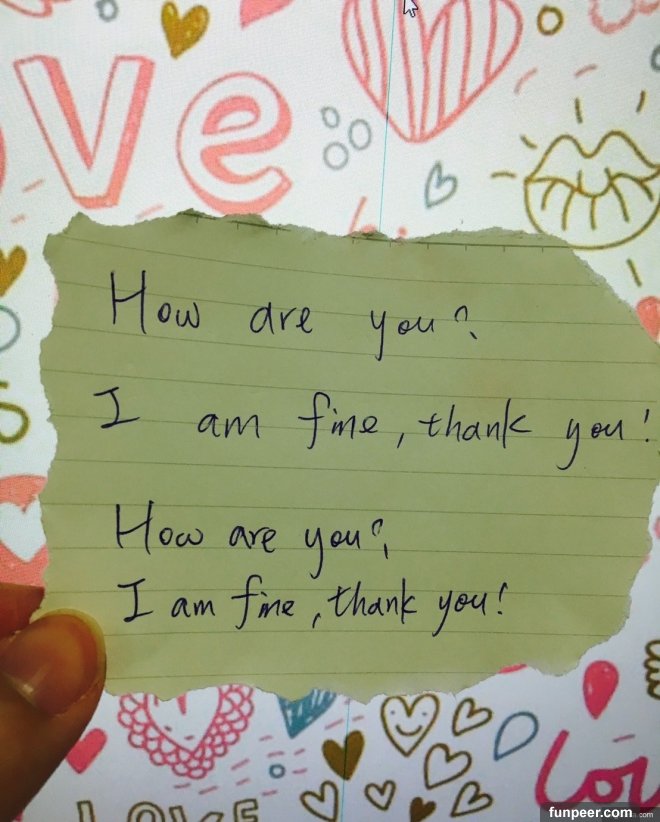 ve
How are you?
I am fine, thank you!
How are you?
I am fine, thank you!
LOVE
Lov
funpeer.com